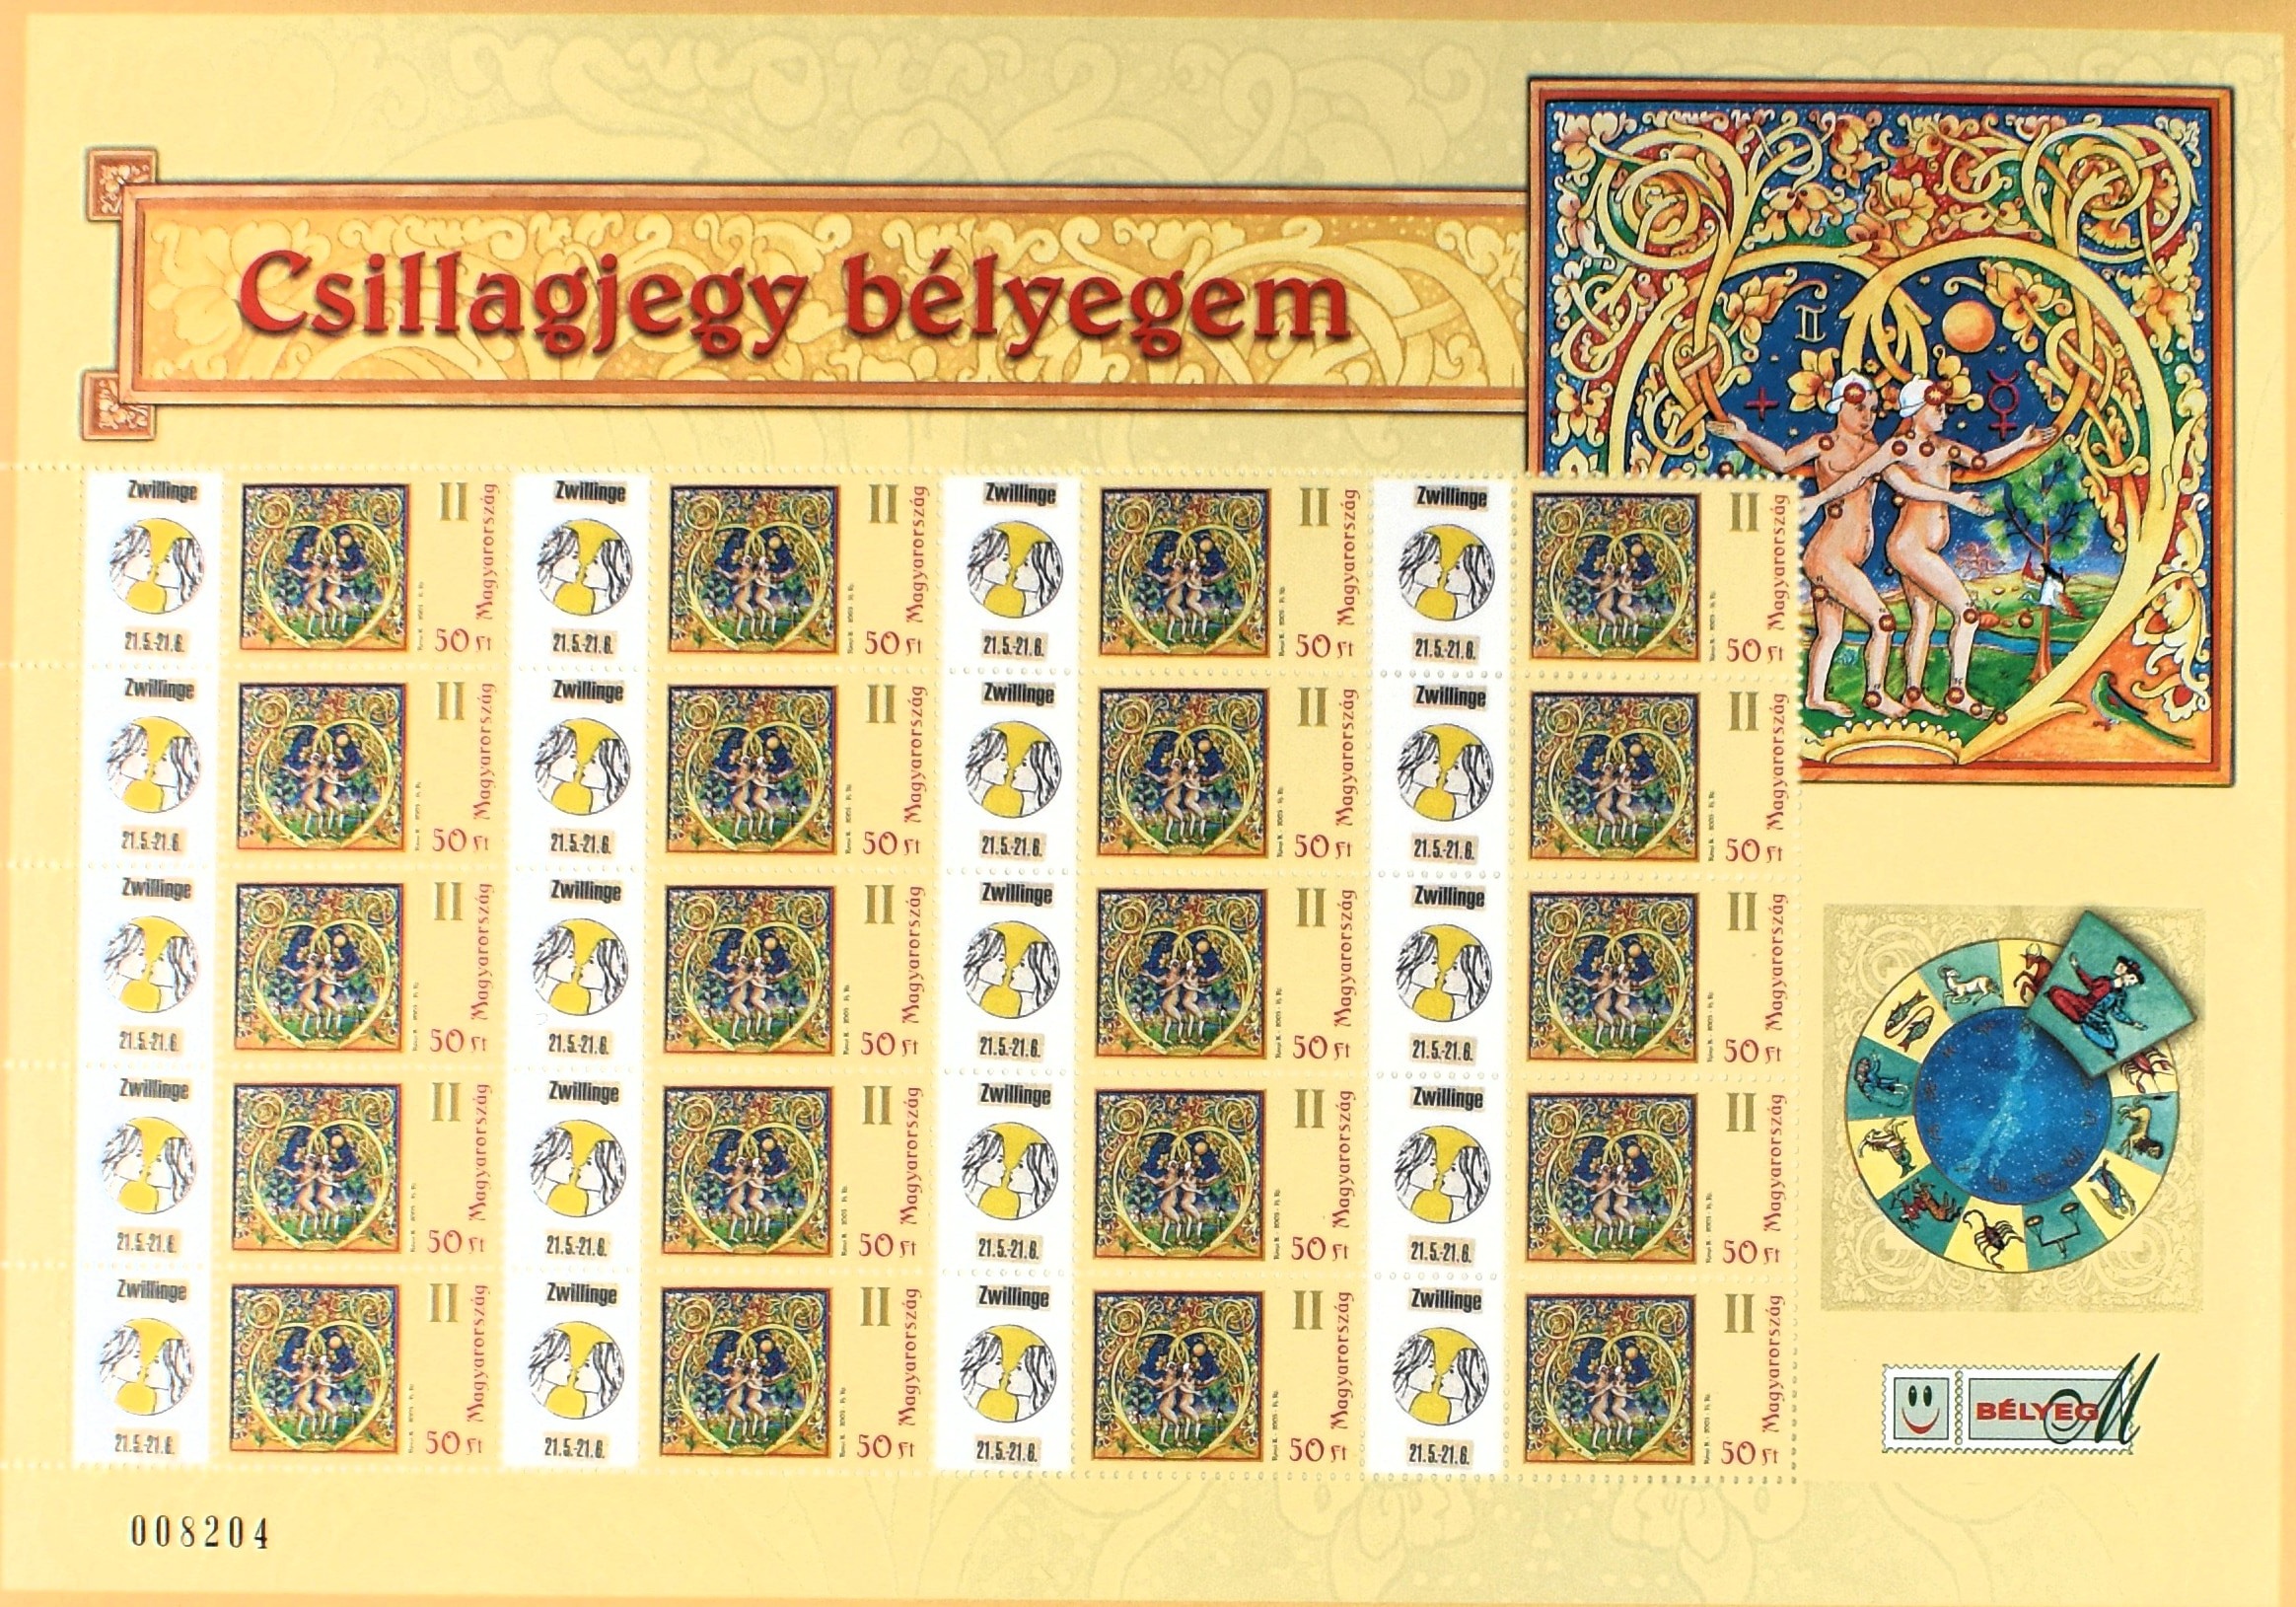 Csillagjegy bélyegem
Zwillinge II Magyarország Zwillinge II Magyarország Zwillinge II Magyarország Zwillinge II Magyarország
21.5.-21.6. 50 Ft 21.5.-21.6. 50 Ft 21.5.-21.6. 50 Ft 21.5.-21.6. 50 Ft
Zwillinge II Magyarország Zwillinge II Magyarország Zwillinge II Magyarország Zwillinge II Magyarország
21.5.-21.6. 50 Ft 21.5.-21.6. 50 Ft 21.5.-21.6. 50 Ft 21.5.-21.6. 50 Ft
Zwillinge II Magyarország Zwillinge II Magyarország Zwillinge II Magyarország Zwillinge II Magyarország
21.5.-21.6. 50 Ft 21.5.-21.6. 50 Ft 21.5.-21.6. 50 Ft 21.5.-21.6. 50 Ft
Zwillinge II Magyarország Zwillinge II Magyarország Zwillinge II Magyarország Zwillinge II Magyarország
21.5.-21.6. 50 Ft 21.5.-21.6. 50 Ft 21.5.-21.6. 50 Ft 21.5.-21.6. 50 Ft
Zwillinge II Magyarország Zwillinge II Magyarország Zwillinge II Magyarország Zwillinge II Magyarország
21.5.-21.6. 50 Ft 21.5.-21.6. 50 Ft 21.5.-21.6. 50 Ft 21.5.-21.6. 50 Ft
BÉLYEGEM
008204